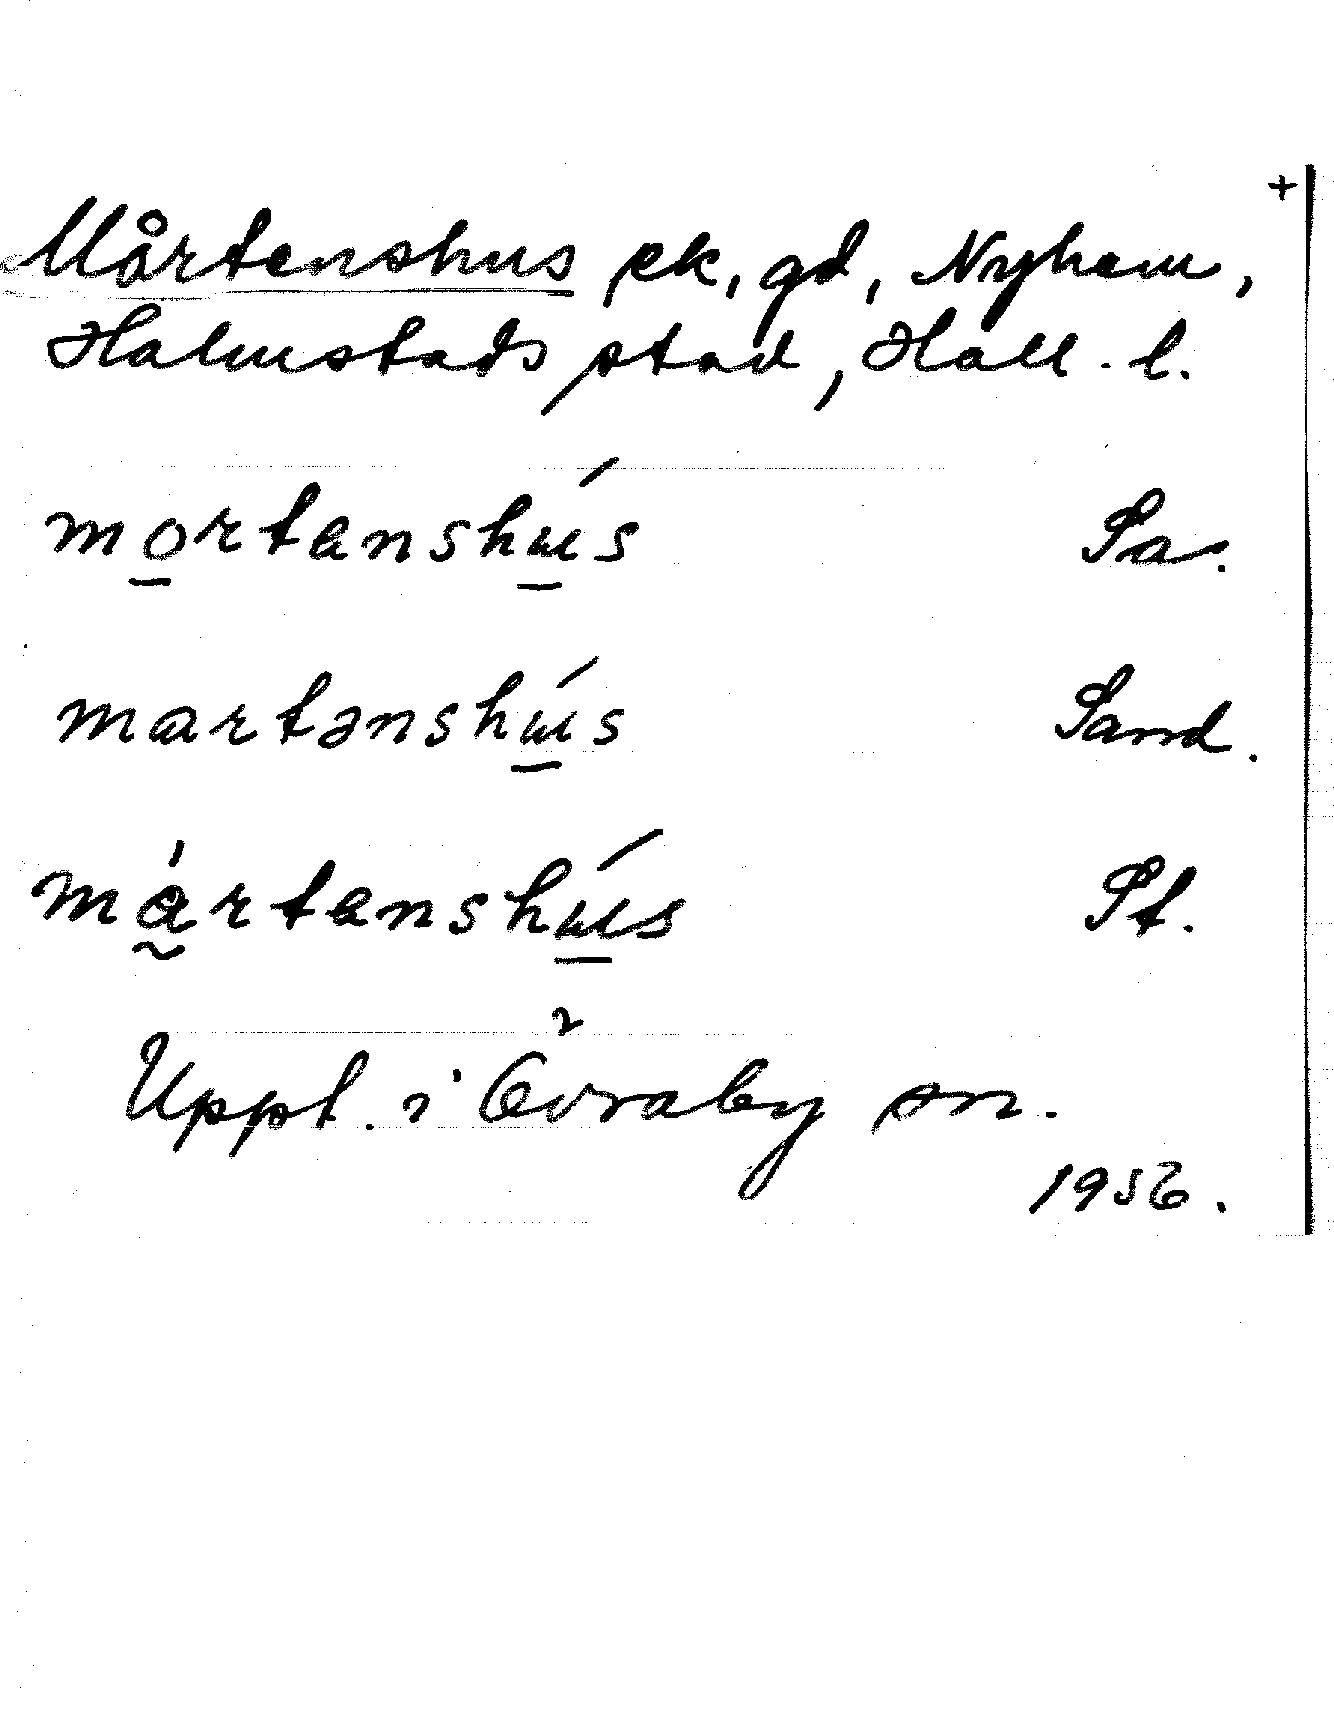 +
Mårtenshus ek, gd, Nyhem,
Halmstads stad, Hall. l.
mo̲rtanshú̲s Sa.
martənshú̲s Sand.
má̰rtanshú̲s St.
Uppt. i Övraby sn.
1956.